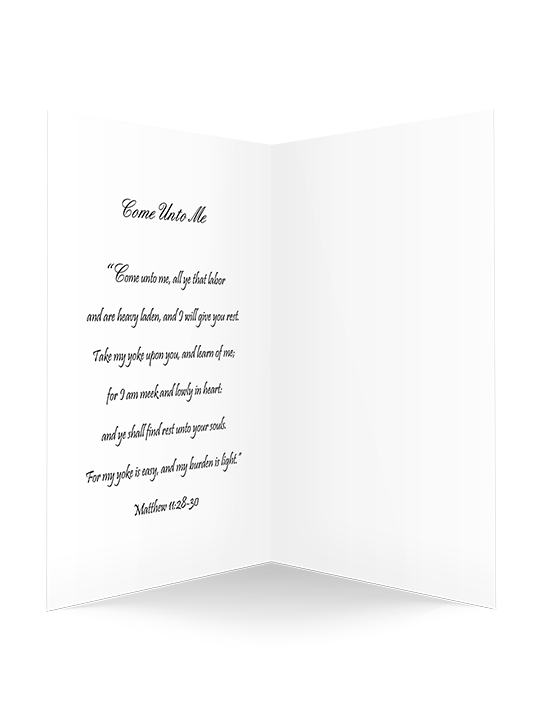 Come Unto Me
“Come unto me, all ye that labor
and are heavy laden, and I will give you rest.
Take my yoke upon you, and learn of me;
for I am meek and lowly in heart:
and ye shall find rest unto your souls.
For my yoke is easy, and my burden is light.”
Matthew 11:28-30